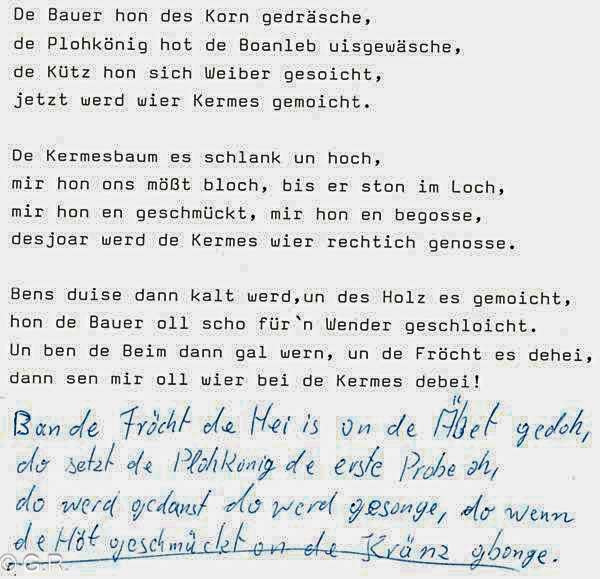 De Bauer hon des Korn gedräsche,
de Plohkönig hot de Boanleb uisgewäsche,
de Kütz hon sich Weiber gesoicht,
jetzt werd wier Kermes gemoicht.
De Kermesbaum es schlank un hoch,
mir hon ons mößt bloch, bis er ston im Loch,
mir hon en geschmückt, mir hon en begosse,
desjoar werd de Kermes wier rechtich genosse.
Bens duise dann kalt werd,un des Holz es gemoicht,
hon de Bauer oll scho für`n Wender geschloicht.
Un ben de Beim dann gal wern, un de Fröcht es dehei,
dann sen mir oll wier bei de Kermes debei!
Ban de Fröcht de Hei is on de gedoh,
do setzt de Plohkönig de erste Probe oh,
do werd gedanst do werd gesonge, do wenn
de Höt geschmückt on de Kränz gbonge.
© G.R.